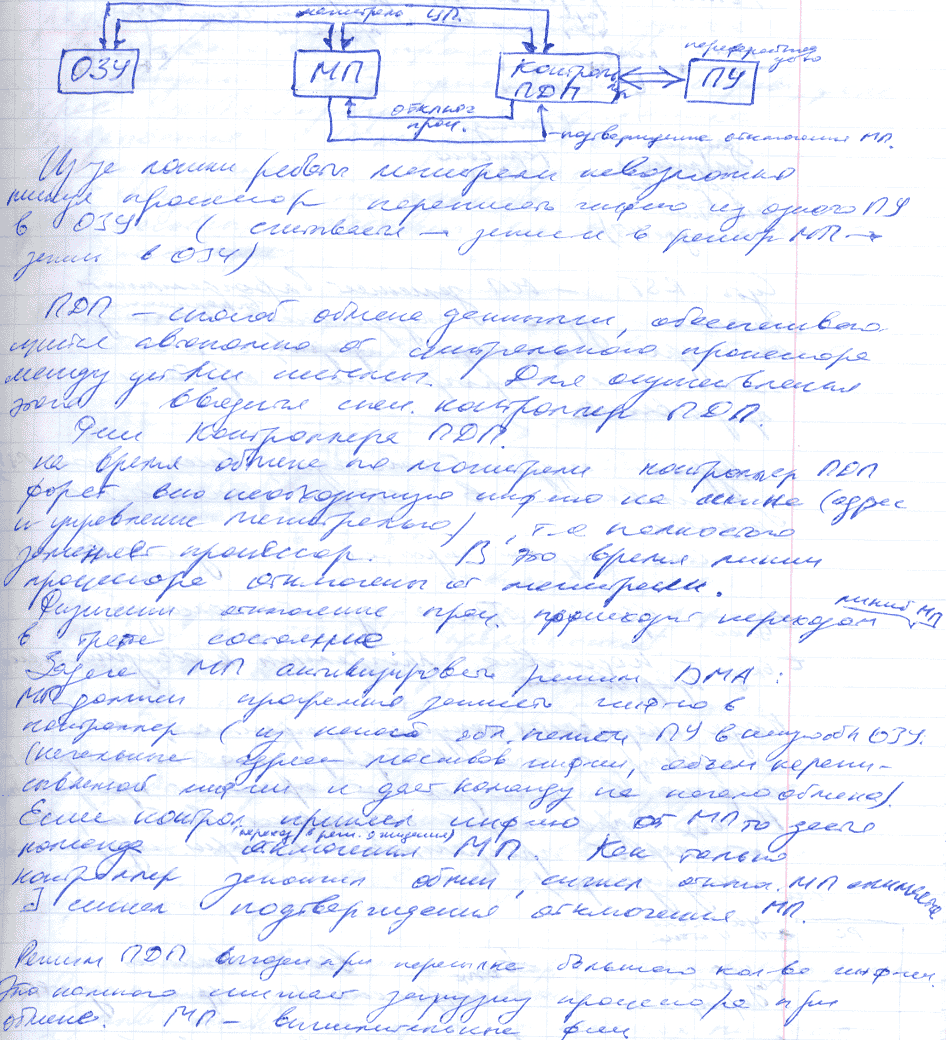 магистраль ЦП.
ОЗУ
МП
Контроллер ПДП
периферийное устр-во
ПУ
отключ. проц.
подтверждение отключения МП.
Из-за логики работы магистрали невозможно
процессор переписать инф-ю из одного ПУ
в ОЗУ ( считывает → запись в регистр МП →
запись в ОЗУ)
ПДП – способ обмена данными, обеспечива
ющийся автономно от центрального процессора
между уст-вами системы. Для осуществления
этого вводится спец. контроллер ПДП.
Ф-ции контроллера ПДП.
на время обмена по магистрали контроллер ПДП
форм-ет всю необходимую инф-ю на (адрес
и управление магистралью), т.е полностью
заменяет процессор. В это время линии
процессора отключены от магистрали.
Физически отключение проц. происходит переходом линий МП
в третье состояние
Задача МП активизировать режим DMA :
МП должен программно записать инф-ю в
контроллер ( из какой обл. памяти ПУ в какую обл ОЗУ.
(начальные адреса массивов инф-ии, объем перепи-
сываемой инф-ии и дает команду на начало обмена).
Если контрол. принял инф-ю от МП то дает
(переход в реж. ожидания)
команда отключения МП. Как только
контроллер закончил обмен, сигнал откл. МП снимается
сигнал подтверждения отключения МП.
Режим ПДП выгоден при пересылке большого кол-ва инф-ии.
Это намного снижает загрузку процессора при
обмене. МП – вычислительные ф-ции